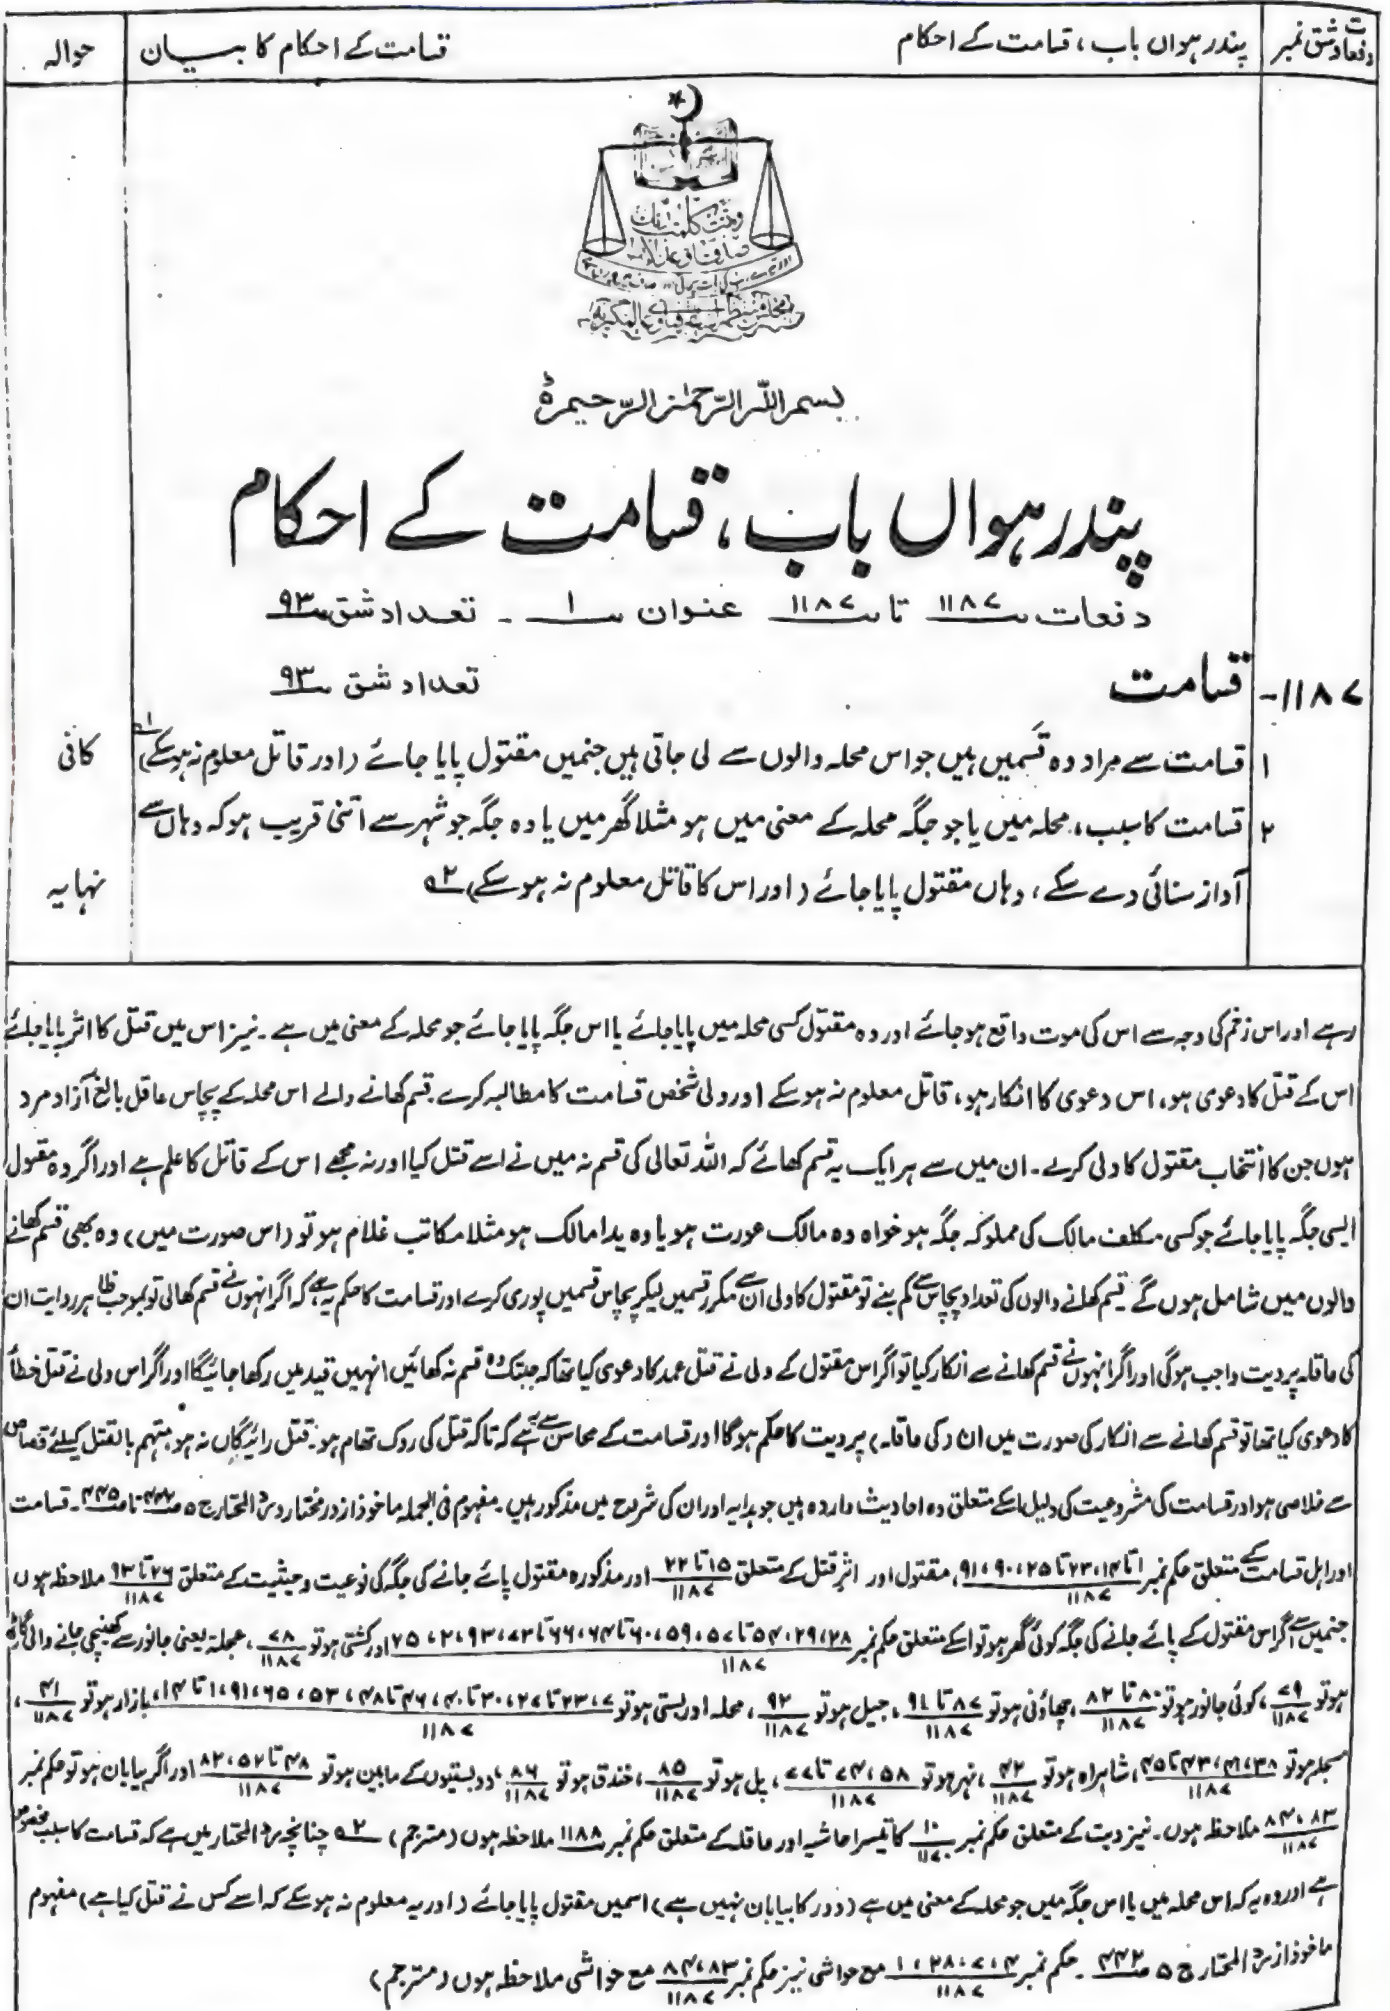 دفعات و شق نمبر
پندرہواں باب، قسامت کے احکام
قسامت کے احکام کا بیان
حوالہ
وتمت کلمت ربک
صدقا و عدلا
بسم اللہ الرحمٰن الرحیم
پندرہواں باب، قسامت کے احکام
دفعات ۱۱۸۷ تا ۱۱۸۷ عنوان ۱ ۔ تعداد شق ۹۳
۱۱۸۷- قسامت تعداد شق ۹۳
۱ قسامت سے مراد وہ قَسمیں ہیں جو اس محلہ والوں سے لی جاتی ہیں جنمیں مقتول پایا جائے (اور قاتل معلوم نہ ہوسکے)۱؎ کافی
۲ قسامت کا سبب، محلہ میں یا جو جگہ محلہ کے معنی میں ہو مثلا گھر میں یا وہ جگہ جو شہر سے اتنی قریب ہو کہ وہاں سے
آواز سنائی دے سکے، وہاں مقتول پایا جائے (اور اس کا قاتل معلوم نہ ہو سکے)۲؎ نہایہ
رہے اور اس زخم کی وجہ سے اس کی موت واقع ہو جائے اور وہ مقتول کسی محلہ میں پایا جائے یا اس جگہ پایا جائے جو محلہ کے معنی میں ہے ۔ نیز اس میں قتل کا اثر پایا جائے
اس کے قتل کا دعوی ہو، اس دعوی کا انکار ہو، قاتل معلوم نہ ہو سکے اور ولی شخص قسامت کا مطالبہ کرے قسم کھانے والے اس محلہ کے پچاس عاقل بالغ آزاد مرد
ہوں جن کا انتخاب مقتول کا ولی کرے ۔ ان میں سے ہر ایک یہ قسم کھائے کہ اللہ تعالی کی قسم نہ میں نے اسے قتل کیا اور نہ مجھے اس کے قاتل کا علم ہے اور اگر وہ مقتول
ایسی جگہ پایا جائے جو کسی مکلف مالک کی مملوکہ جگہ ہو خواہ وہ مالک عورت ہو یا وہ یدا مالک ہو مثلا مکاتب غلام ہو تو (اس صورت میں) وہ بھی قسم کھانے
والوں میں شامل ہوں گے قسم کھانے والوں کی تعداد پچاس سے کم بنے تو مقتول کا ولی ان سے مکرر قسمیں لیکر پچاس قسمیں پوری کرے اور قسامت کا حکم یہ ہے کہ اگر انہوں نے قسم کھالی تو بموجب ظاہر روایت ان
کی عاقلہ پر دیت واجب ہوگی اور اگر انہوں نے قسم کھانے سے انکار کیا تو اگر اس مقتول کے ولی نے قتل عمد کا دعوی کیا تھا کہ جبتک وہ قسم نہ کھائیں انہیں قید میں رکھا جائیگا اور اگر اس ولی نے قتل خطأ
کا دعوی کیا تھا تو قسم کھانے سے انکار کی صورت میں ان (کی عاقلہ) پر دیت کا حکم ہوگا اور قسامت کے محاسن سے یہ ہے کہ تاکہ قتل کی روک تھام ہو ۔ قتل رائیگاں نہ ہو، متہم بالقتل کیلئے قصاص
سے خلاصی ہو اور قسامت کی مشروعیت کی دلیل اسکے متعلق وہ احادیث وارده ہیں جو ہدایہ اور ان کی شروح میں مذکور ہیں ۔ مفہوم فی الجملہ ماخوذ از در مختار و رد المحتار ج ۵ ص ۴۴۲ تا ص ۴۴۵ ۔ قسامت
اور اہل قسامت کے متعلق حکم نمبر ۱ تا ۱۴، ۲۳ تا ۲۵، ۹۰، ۹۱/۱۱۸۷، مقتول اور اثر قتل کے متعلق ۱۵ تا ۲۲/۱۱۸۷ اور مذکورہ مقتول پائے جانے کی جگہ کی نوعیت و حیثیت کے متعلق ۲۶ تا ۹۳/۱۱۸۷ ملاحظہ ہوں
جنمیں سے اگر اس مقتول کے پائے جانے کی جگہ کوئی گھر ہو تو اسکے متعلق حکم نمبر ۲۸، ۲۹، ۵۴ تا ۵۷، ۵۹، ۶۰ تا ۶۴، ۶۶ تا ۷۳، ۹۳، ۲، ۷۵/۱۱۸۷ اور کشتی ہو تو ۷۸/۱۱۸۷، عجلہ یعنی جانور سے کھینچی جانے والی گاڑی
ہو تو ۷۹/۱۱۸۷، کوئی جانور ہو تو ۸۰ تا ۸۲/۱۱۸۷، چھاؤنی ہو تو ۸۷ تا ۹۱/۱۱۸۷، جیل ہو تو ۹۲/۱۱۸۷، محلہ اور بستی ہو تو ۷، ۲۳ تا ۲۷، ۳۰ تا ۴۰، ۴۶ تا ۴۸، ۵۳، ۶۵، ۹۱، ۱ تا ۱۴/۱۱۸۷، بازار ہو تو ۴۱/۱۱۸۷،
مسجد ہو تو ۳۸، ۴۱، ۴۳ تا ۴۵/۱۱۸۷، شاہراہ ہو تو ۴۲/۱۱۸۷، نہر ہو تو ۵۸، ۷۴ تا ۷۷/۱۱۸۷، پل ہو تو ۸۵/۱۱۸۷، خندق ہو تو ۸۶/۱۱۸۷، دو بستیوں کے مابین ہو تو ۴۸ تا ۵۲، ۸۲/۱۱۸۷ اور اگر بیابان ہو تو حکم نمبر
۸۳، ۸۴/۱۱۸۷ ملاحظہ ہوں ۔ نیز دیت کے متعلق حکم نمبر ۱۰/۱۱۷۰ کا تیسرا حاشیہ اور عاقلہ کے متعلق حکم نمبر ۱۱۸۸ ملاحظہ ہوں (مترجم) ۲؎ چنانچہ رد المحتار میں ہے کہ قسامت کا سبب مخصوص
ہے اور وہ یہ کہ اس محلہ میں یا اس جگہ میں جو محلہ کے معنی میں ہے (دور کا بیابان نہیں ہے) اسمیں مقتول پایا جائے (اور یہ معلوم نہ ہو سکے کہ اسے کس نے قتل کیا ہے) مفہوم
ماخوذ از رد المحتار ج ۵ ص ۴۴۲ ۔ حکم نمبر ۴، ۷، ۲۸، ۱/۱۱۸۷ مع حواشی نیز حکم نمبر ۸۳، ۸۴/۱۱۸۷ مع حواشی ملاحظہ ہوں (مترجم)